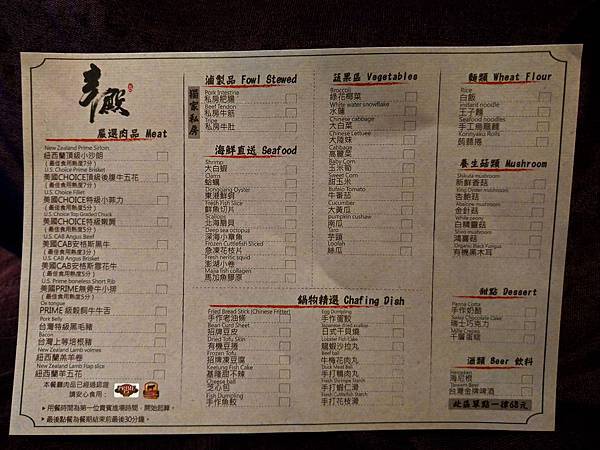 嚴選肉品 Meat
New Zealand Prime Sirloin
紐西蘭頂級小沙朗
(最佳食用熟度7分)
U.S. Choice Prime Brisket
美國CHOICE頂級後腹牛五花
(最佳食用熟度7分)
U.S. Choice Fillet
美國CHOICE特級小菲力
(最佳食用熟度5分)
U.S. Choice Top Graded Chuck
美國CHOICE特級嫩肩
(最佳食用熟度5分)
U.S. CAB Angus Beef
美國CAB安格斯黑牛
(最佳食用熟度3分)
U.S. CAB Angus Brisket
美國CAB安格斯雪花牛
(最佳食用熟度5分)
U.S. Prime boneless Short Rib
美國PRIME無骨牛小排
(最佳食用熟度5分)
Ox tongue
PRIME 級穀飼牛牛舌
Pork Belly
台灣特級黑毛豬
Bacon
台灣上等培根豬
New Zealand Lamb volmes
紐西蘭羔羊卷
New Zealand Lamb Flap slice
紐西蘭羊五花
本餐廳肉品已經過認證
請安心食用:
▸用餐時間為第一位貴賓進場時間,開始起算。
▸最後點餐為餐期結束前最後30分鐘。
獨家私房
滷製品 Fowl Stewed
Pork Intestine
私房肥腸
Beef Tendon
私房牛筋
Tripe
私房牛肚
海鮮直送 Seafood
Shrimp
大白蝦
Clams
蛤蠣
Dongjiang Oyster
東港鮮蚵
Fresh Fish Slice
鮮魚切片
Scallops
北海扇貝
Deep sea octopus
深海小章魚
Frozen Cuttlefish Sliced
急凍花枝片
Fresh neritic squid
澎湖小卷
Majia fish collagen
馬加魚膠原
鍋物精選 Chafing Dish
Fried Bread Stick (Chinese Fritter)
手作老油條
Bean Curd Sheet
招牌豆皮
Dried Tofu Skin
有機豆捲
Frozen Tofu
招牌凍豆腐
Keelung Fish Cake
基隆甜不辣
Cheese ball
芝心包
Fish Dumpling
手作魚餃
Egg Dumpling
手作蛋餃
Japanese dried scallop
日式干貝燒
Lobster Fish Cake
龍蝦沙拉丸
Beef ball
牛梅花肉丸
Duck Meat Ball
手打鴨肉丸
Fresh Shrimp Starch
手打蝦仁滑
Fresh Cuttlefish Starch
手打花枝滑
蔬果區 Vegetables
Broccoli
綠花椰菜
White water snowflake
水蓮
Chinese cabbage
大白菜
Chinese Lettuee
大陸妹
Cabbage
高麗菜
Baby Corn
玉米筍
Sweet Corn
甜玉米
Bufalo Tomato
牛番茄
Cucumber
大黃瓜
pumpkin cushaw
南瓜
Taro
芋頭
Loofah
絲瓜
麵類 Wheat Flour
Rice
白飯
instant noodle
王子麵
Seafood noodles
手工烏龍麵
Konnyaku Rolls
蒟蒻捲
養生菇類 Mushroom
Shiitake mushroom
新鮮香菇
King Oyster mushroom
杏鮑菇
Abalone mushroom
金針菇
White peony
白精靈菇
Shiro mushroom
鴻喜菇
Organic Black Fungus
有機黑木耳
甜點 Dessert
Panna Cotta
手作奶酪
Swiss Chocolate Cake
瑞士巧克力
Mille Crepes
千層蛋糕
酒類 Beer 飲料
Heineken
海尼根
Taiwan Beer
台灣金牌啤酒
此區單點一律68元